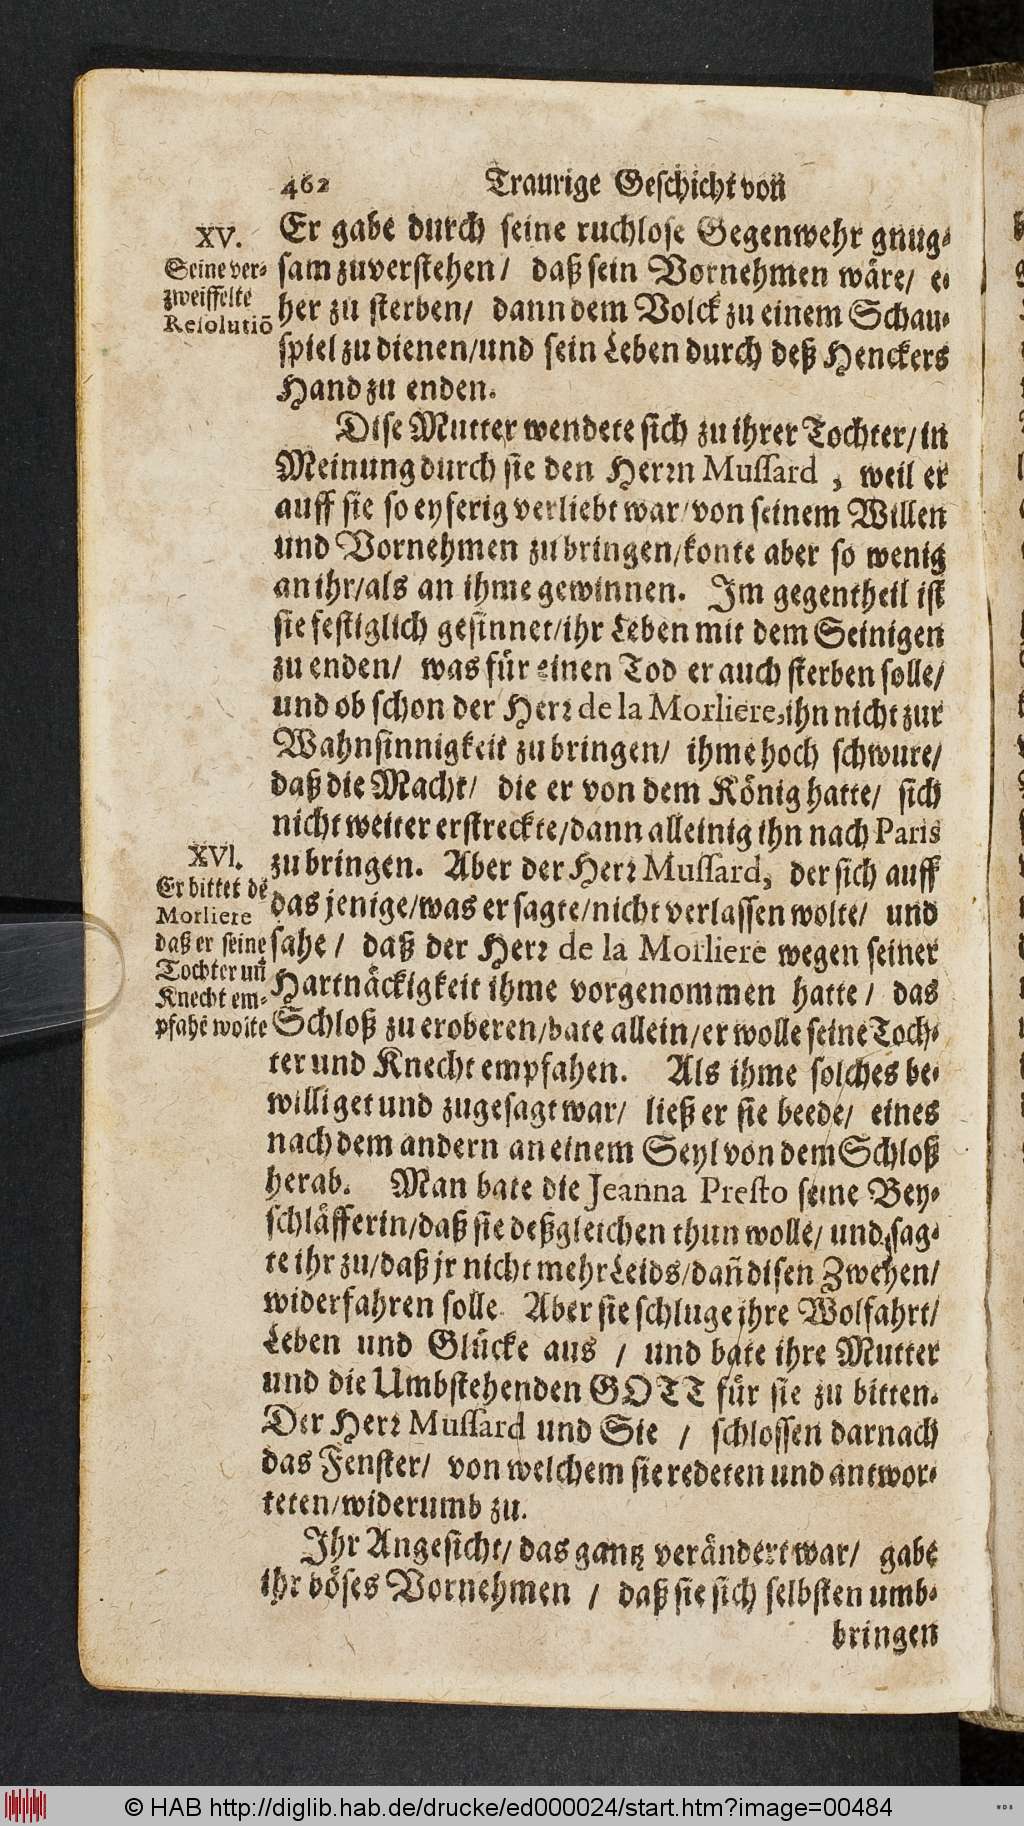 462 Traurige Geschicht von
XV.
Seine ver-
zweiffelte
Resolutiō
Er gabe durch seine ruchlose Gegenwehr gnug-
sam zuverstehen/ daß sein Vornehmen wäre/ e-
her zu sterben/ dann dem Volck zu einem Schau-
spiel zu dienen/und sein Leben durch deß Henckers
Hand zu enden.
Dise Mutter wendete sich zu ihrer Tochter/in
Meinung durch sie den Herrn Mussard, weil er
auff sie so eyferig verliebt war/von seinem Willen
und Vornehmen zu bringen/konte aber so wenig
an ihr/als an ihme gewinnen. Im gegentheil ist
sie festiglich gesinnet/ihr Leben mit dem Seinigen
zu enden/ was für einen Tod er auch sterben solle/
und ob schon der Herr de la Morliere, ihn nicht zur
Wahnsinnigkeit zu bringen/ ihme hoch schwure/
daß die Macht/ die er von dem König hatte/ sich
nicht weiter erstreckte/dann alleinig ihn nach Paris
zu bringen. Aber der Herr Mussard, der sich auff
das jenige/was er sagte/nicht verlassen wolte/ und
sahe/ daß der Herr de la Morliere wegen seiner
Hartnäckigkeit ihme vorgenommen hatte/ das
Schloß zu eroberen/bate allein/er wolle seine Toch-
ter und Knecht empfahen. Als ihme solches be-
williget und zugesagt war/ ließ er sie beede/ eines
nach dem andern an einem Seyl von dem Schloß
herab. Man bate die Jeanna Presto seine Bey-
schläfferin/daß sie deßgleichen thun wolle/ und sag-
te ihr zu/daß jr nicht mehr Leids/dañ disen Zweyen/
widerfahren solle. Aber sie schluge ihre Wolfahrt/
Leben und Glücke aus / und bate ihre Mutter
und die Umbstehenden GOTT für sie zu bitten.
Der Herr Mussard und Sie / schlossen darnach
das Fenster/ von welchem sie redeten und antwor-
teten/widerumb zu.
Ihr Angesicht/ das gantz verändert war/ gabe
ihr böses Vornehmen / daß sie sich selbsten umb-
bringen
XVI.
Er bittet dē
Morliere
daß er seine
Tochter uñ
Knecht em-
pfahē wolte
© HAB http://diglib.hab.de/drucke/ed000024/start.htm?image=00484
WDB